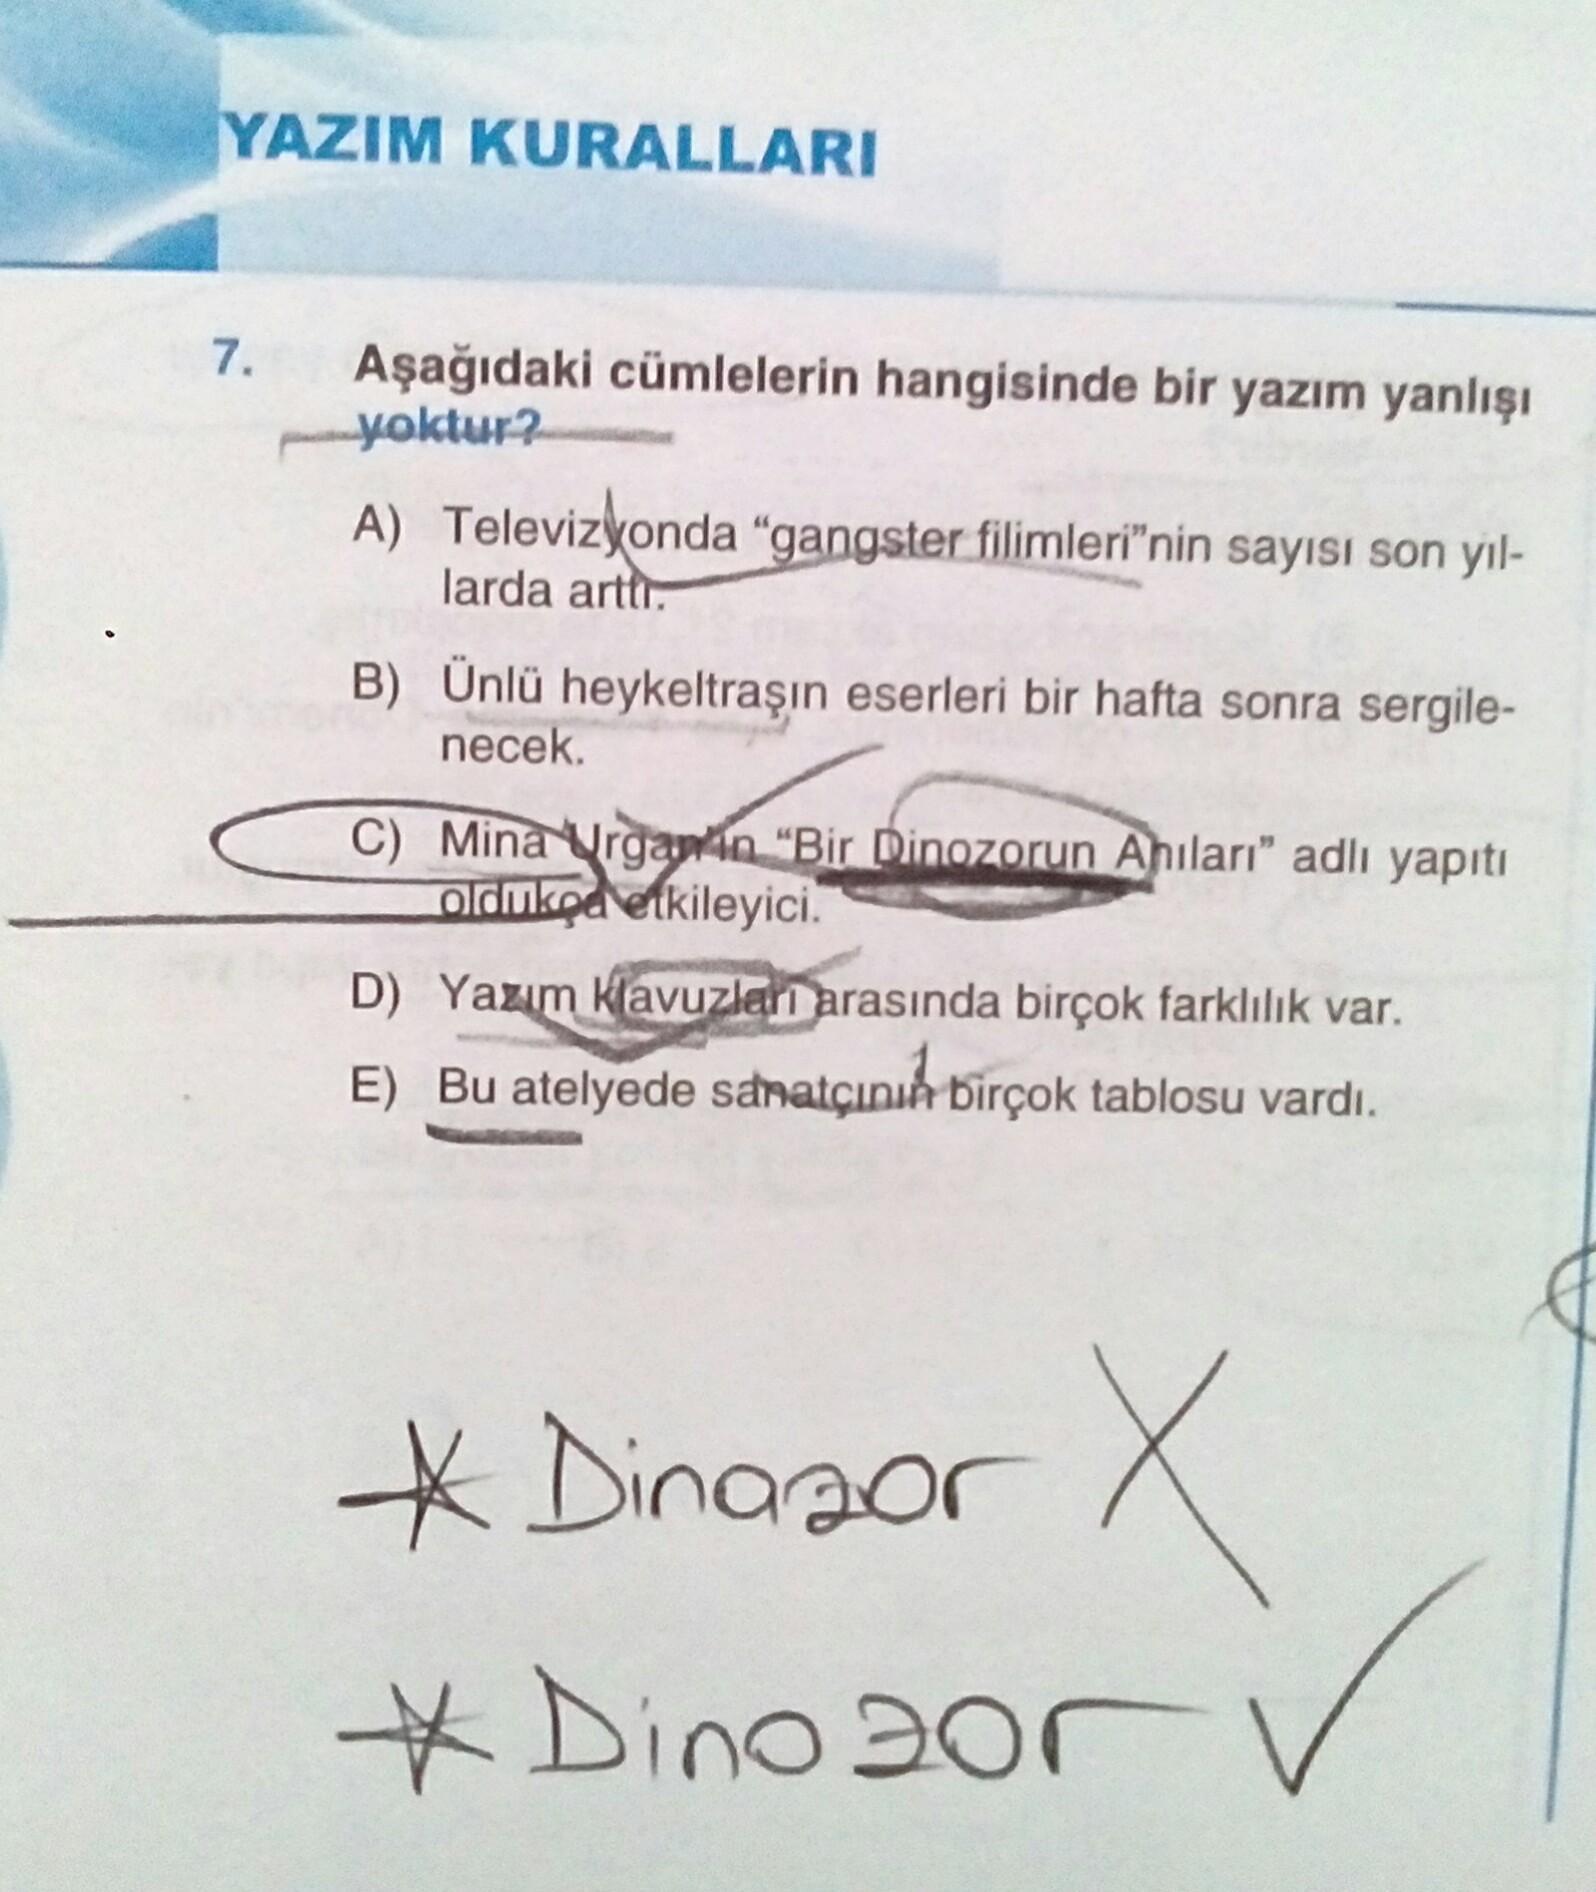 YAZIM KURALLARI
7. Aşağıdaki cümlelerin hangisinde bir yazım yanlışı
yoktur?
A) Televizyonda “gangster filimleri”nin sayısı son yıl-
larda arttı.
B) Ünlü heykeltraşın eserleri bir hafta sonra sergile-
necek.
C) Mina Urgan'ın “Bir Dinozorun Anıları” adlı yapıtı
oldukça etkileyici.
D) Yazım klavuzları arasında birçok farklılık var.
E) Bu atelyede sanatçının birçok tablosu vardı.
* Dinazor X
* Dinozor ✓